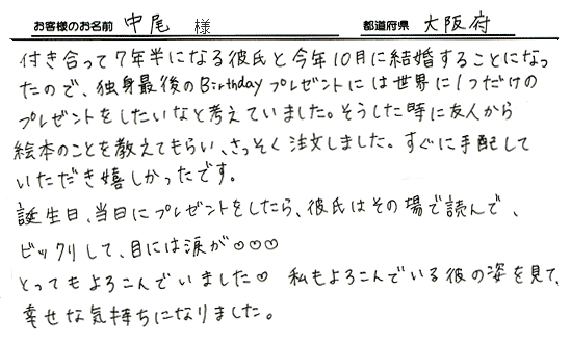 お客様のお名前 中尾 様 都道府県 大阪府
付き合って7年半になる彼氏と今年10月に結婚することになっ
たので、独身最後のBirthdayプレゼントには世界に1つだけの
プレゼントをしたいなと考えていました。そうした時に友人から
絵本のことを教えてもらい、さっそく注文しました。すぐに手配して
いただき嬉しかったです。
誕生日、当日にプレゼントをしたら、彼氏はその場で読んで、
ビックリして、目には涙が♡♡♡
とってもよろこんでいました♡ 私もよろこんでいる彼の姿を見て、
幸せな気持ちになりました。